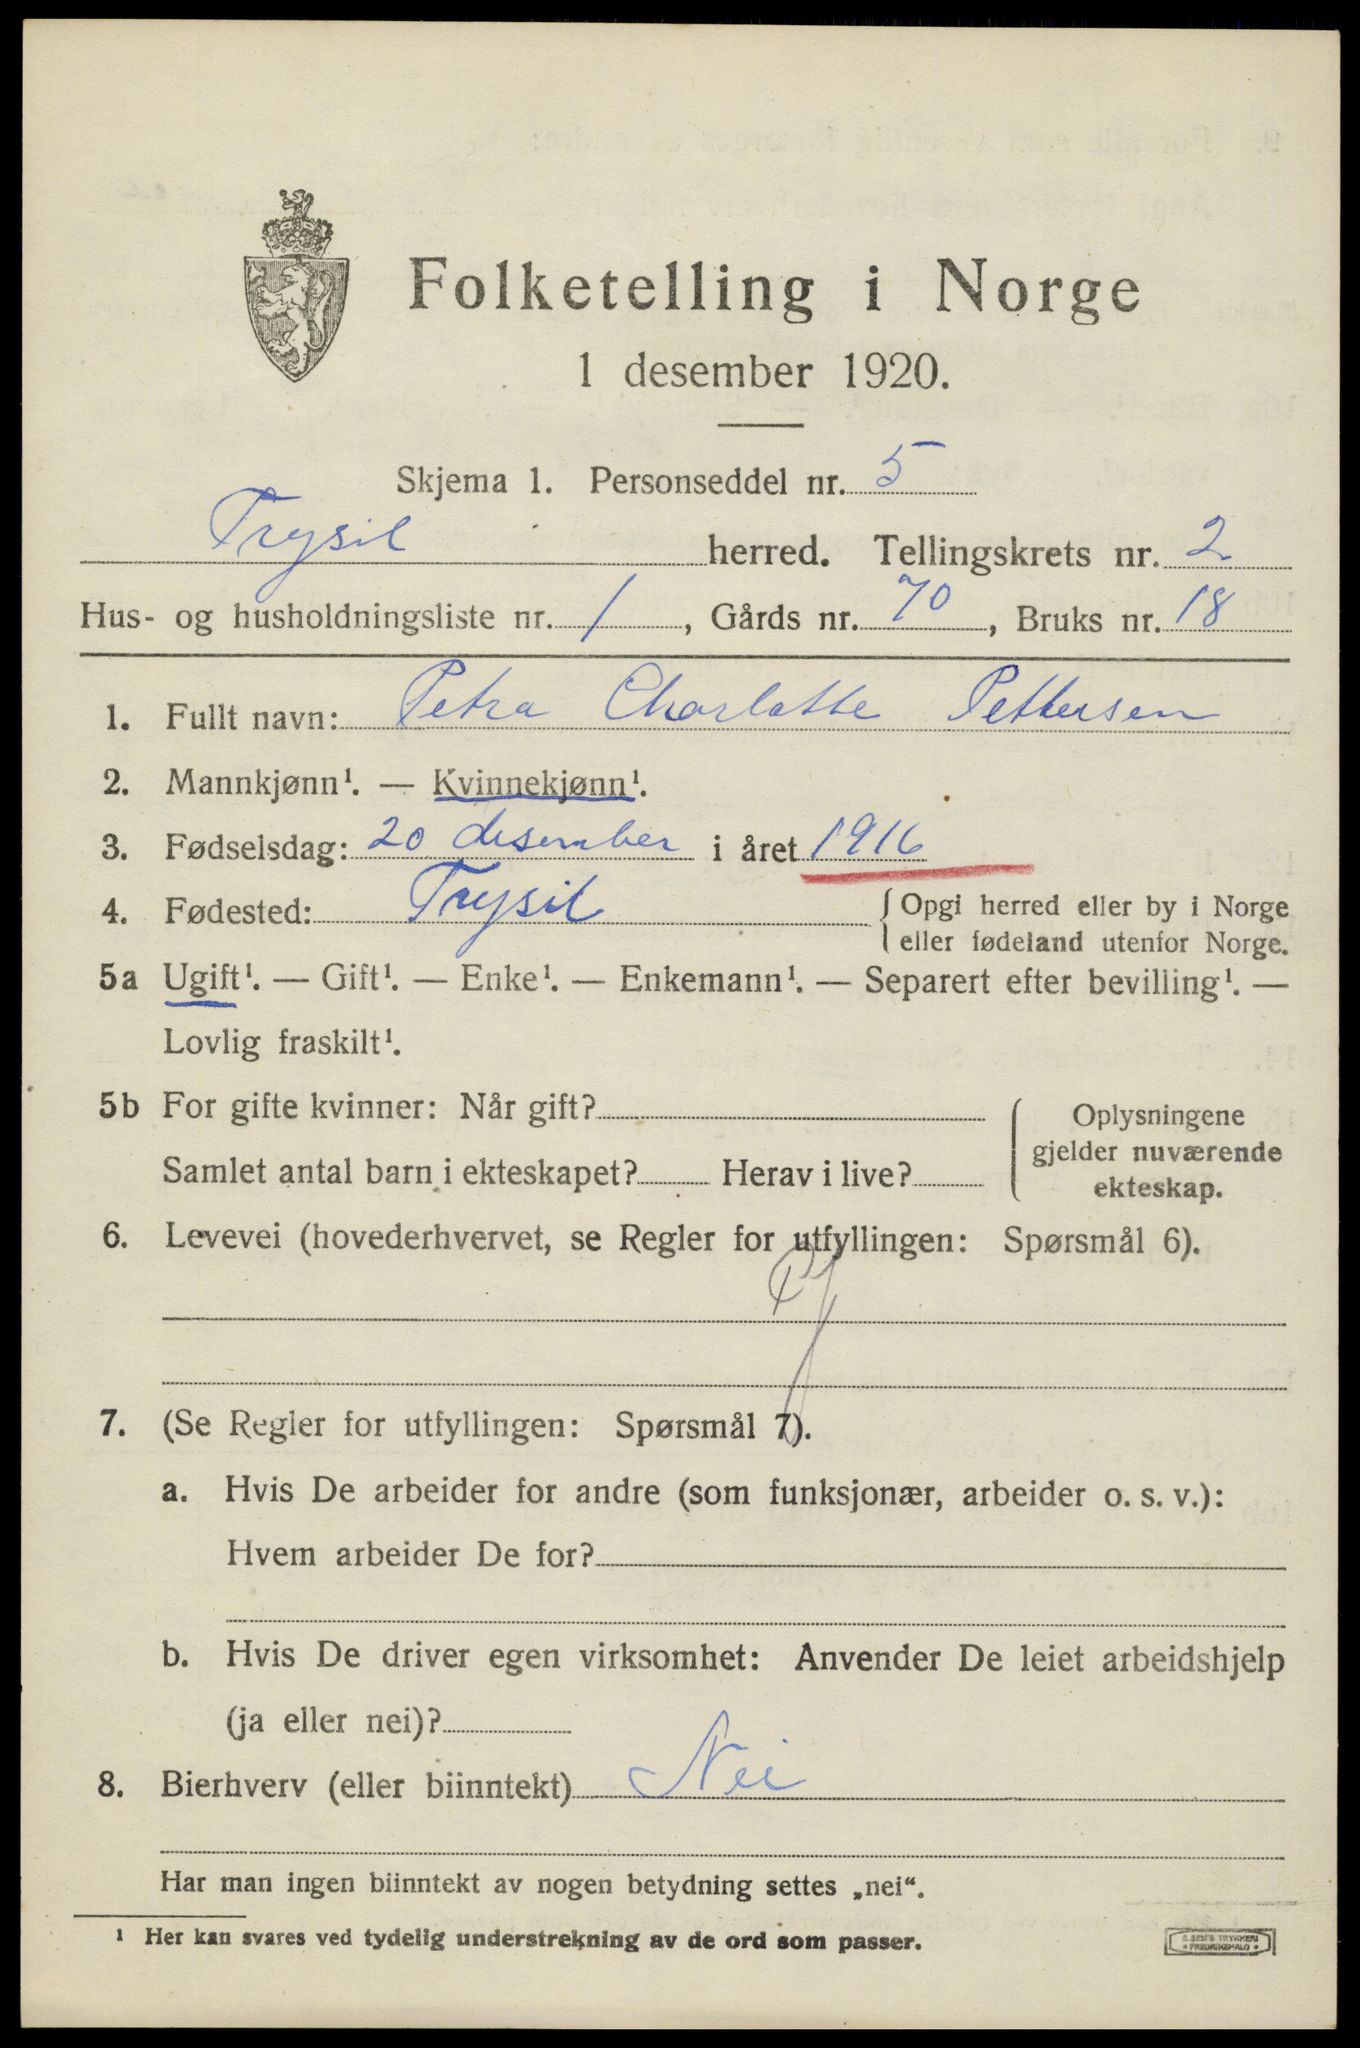 Folketelling i Norge
1 desember 1920.
Skjema 1. Personseddel nr. 5
Trysil herred. Tellingskrets nr. 2
Hus- og husholdningsliste nr. 1, Gårds nr. 70, Bruks nr. 18
1. Fullt navn: Petra Charlotte Pettersen
2. Mannkjønn¹. — Kvinnekjønn¹.
3. Fødselsdag: 20 desember i året 1916
4. Fødested: Trysil { Opgi herred eller by i Norge
eller fødeland utenfor Norge.
5a Ugift¹. — Gift¹. — Enke¹. — Enkemann¹. — Separert efter bevilling¹. —
Lovlig fraskilt¹.
5b For gifte kvinner: Når gift?
Samlet antal barn i ekteskapet? Herav i live?
Oplysningene
gjelder nuværende
ekteskap.
6. Levevei (hovederhvervet, se Regler for utfyllingen: Spørsmål 6).
7. (Se Regler for utfyllingen: Spørsmål 7).
a. Hvis De arbeider for andre (som funksjonær, arbeider o. s. v.):
Hvem arbeider De for?
b. Hvis De driver egen virksomhet: Anvender De leiet arbeidshjelp
(ja eller nei)?
8. Bierhverv (eller biinntekt) Nei
Har man ingen biinntekt av nogen betydning settes „nei“.
¹ Her kan svares ved tydelig understrekning av de ord som passer.
E. SEM'S TRYKKERI
• FREDRIKSHALD •